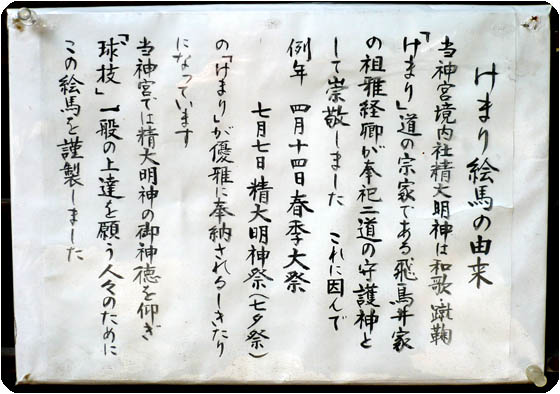 けまり絵馬の由来
当神宮境内社精大明神は和歌・蹴鞠
「けまり」道の宗家である飛鳥井家
の祖雅経卿が奉祀二道の守護神と
して崇敬しました　これに因んで
例年　四月十四日春季大祭
七月七日精大明神祭(七夕祭)
の「けまり」が優雅に奉納されるしきたり
になっています
当神宮では精大明神の御神徳を仰ぎ
「球技」一般の上達を願う人々のために
この絵馬を謹製しました